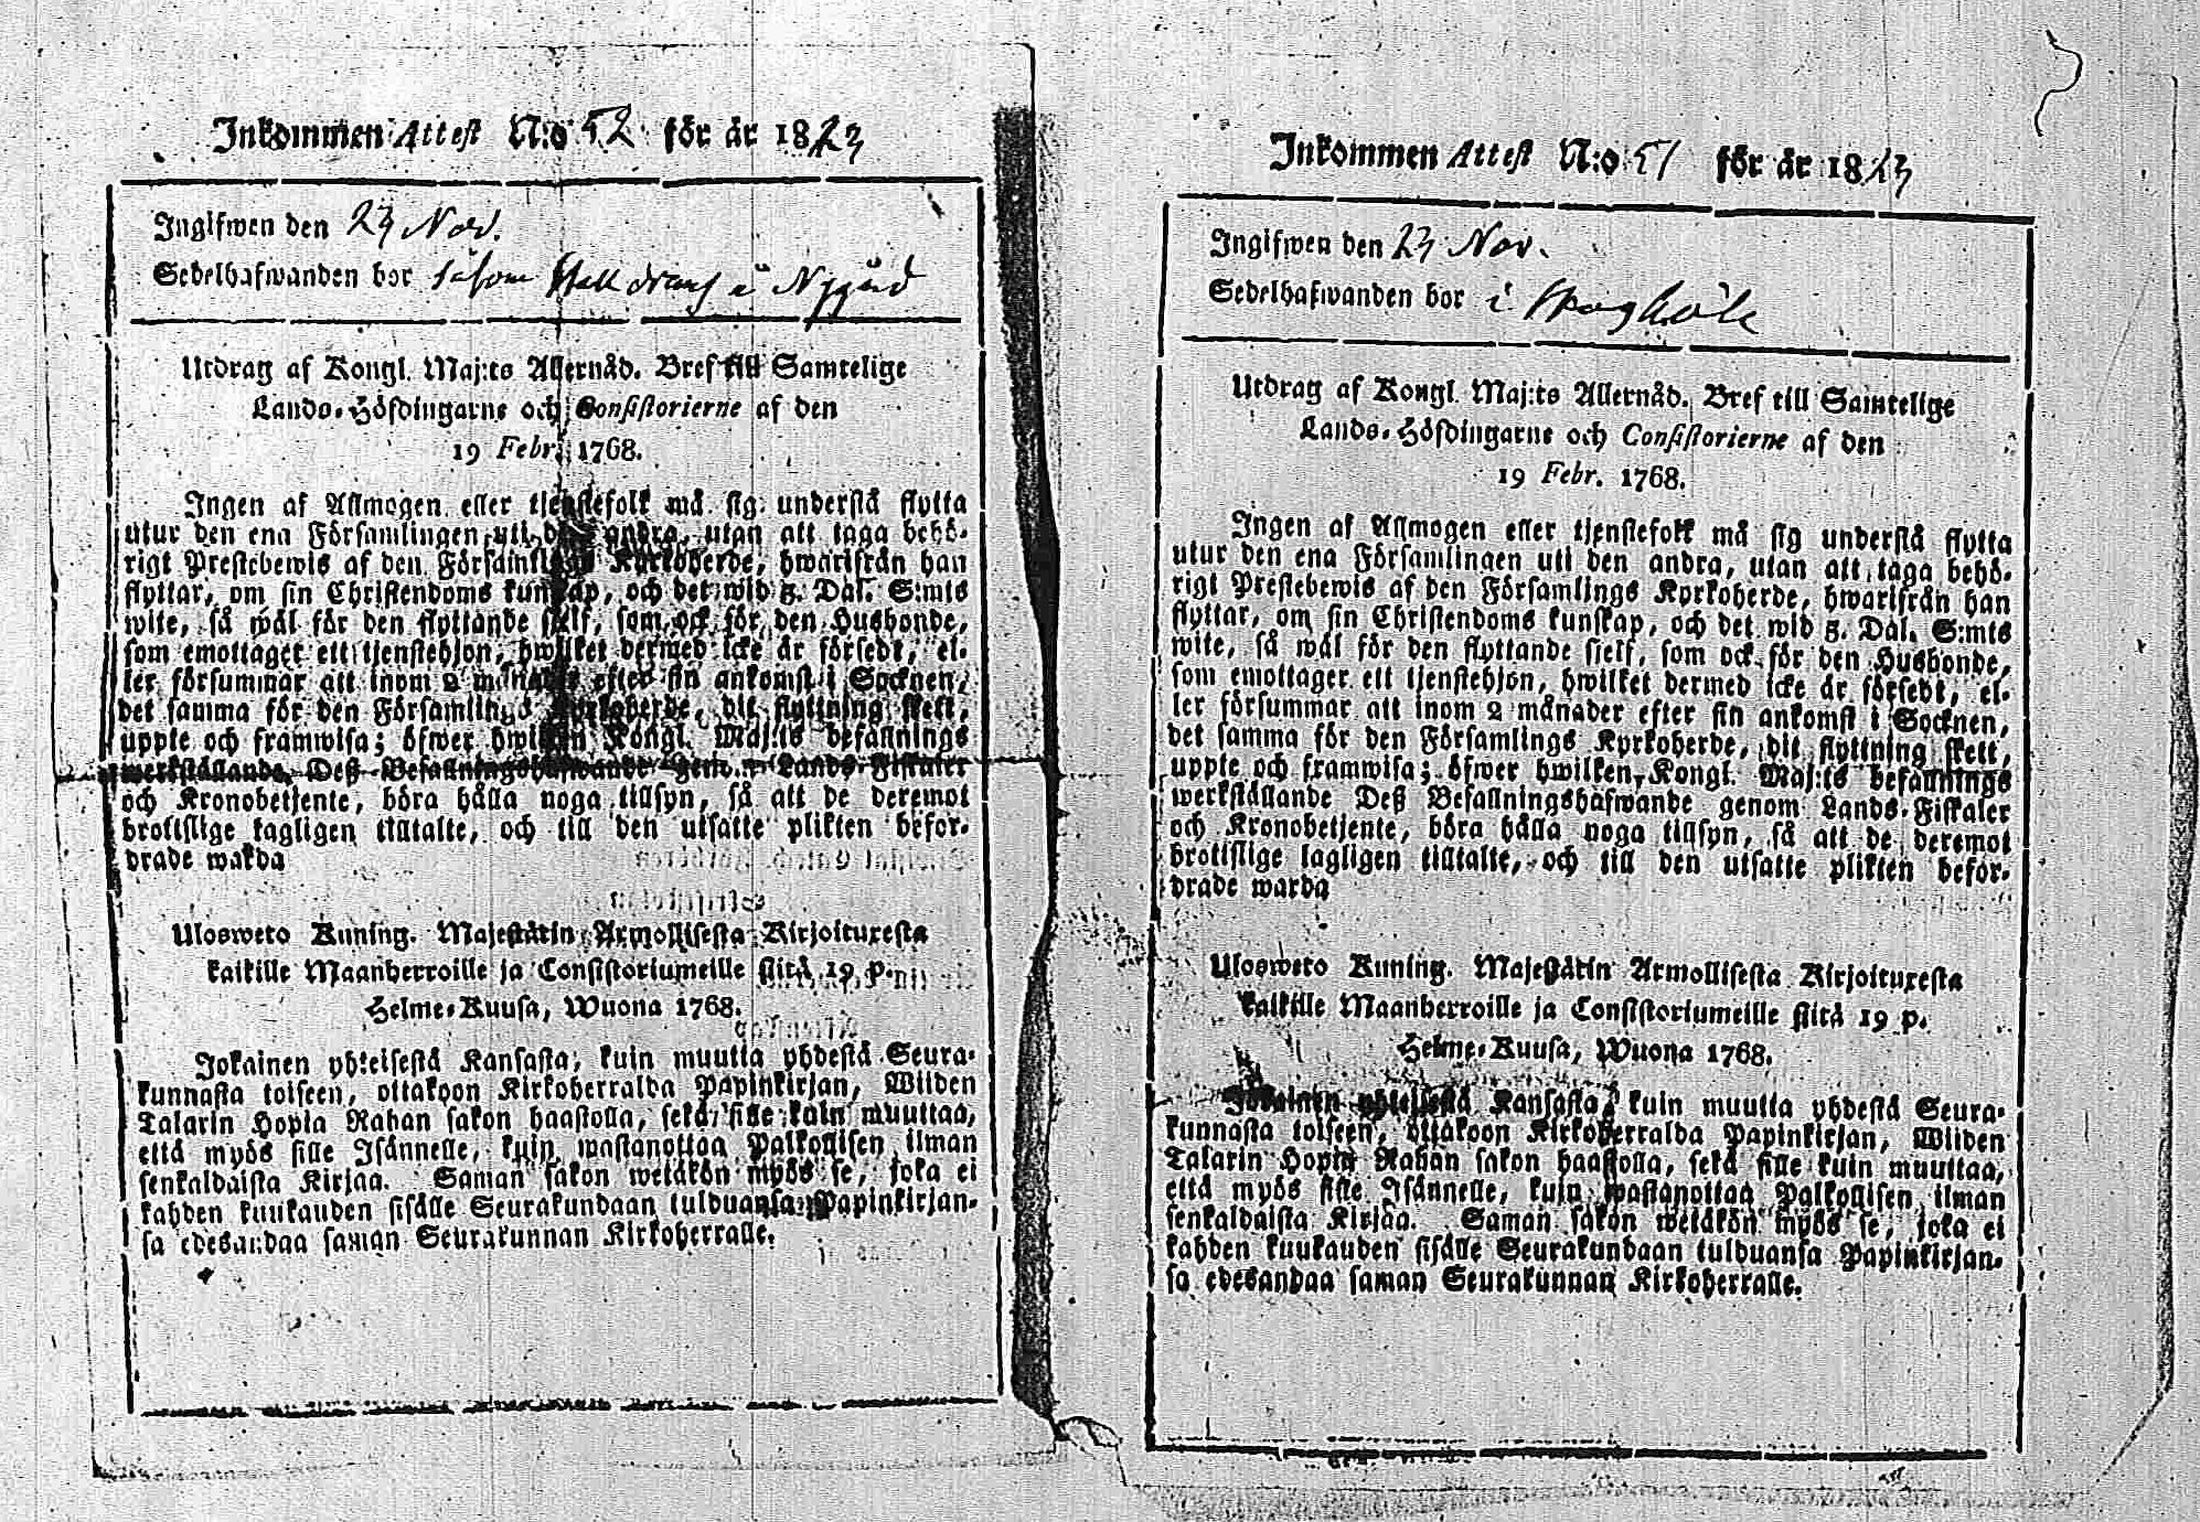 Inkommen Attest N:o 52 för år 1823
Ingifwen den 23 Nov.
Sedelhafwanden bor såsom
Utdrag af Kongl. Maj:ts Allernåd. Bref till Samtelige
Lands-Höfdingarne och Consistorierne af den
19 Febr. 1768.
Ingen af Allmogen eller tjenstefolk må sig understå flytta
utur den ena Församlingen uti den andra, utan att taga behö-
rigt Prestebewis af den Församlings Kyrkoherde, hwarifrån han
flyttar, om sin Christendoms kunskap, och det wid 3. Dal. S:mts
wite, så wäl för den flyttande sielf, som ock för den Husbonde,
som emottaget ett tjenstehjon, hwilket dermed icke är försedt, el-
ler försummar att inom 2 månader efter sin ankomst i Socknen,
det samma för den Församlings Kyrkoherde, dit flyttning skett,
uppte och framwisa; öfwer hwilken Kongl. Maj:ts befallnings
werkställande Deß Befallningshafwande genom Lands-Fiskaler
och Kronobetjente, böra hålla noga tillsyn, så att de deremot
brottslige lagligen tilltalte, och till den utsatte plikten befor-
drade warda
Ulosweto Kuning. Majestätin Armollisesta Kirjoituxesta
kaikille Maanherroille ja Consistoriumeille siitä 19 p.
Helme-Kuusa, Wuona 1768.
Jokainen yhteisestä Kansasta, kuin muutta yhdestä Seura-
kunnasta toiseen, ottakoon Kirkoherralda Papinkirjan, Wiiden
Talarin Hopia Rahan sakon haastolla, sekä sille kuin muuttaa,
että myös sille Isännelle, kuin wastanottaa Palkollisen ilman
senkaldaista Kirjaa. Saman sakon wetäkön myös se, joka ei
kahden kuukauden sisälle Seurakundaan tulduansa Papinkirjan-
sa edesandaa saman Seurakunnan Kirkoherralle.
Inkommen Attest N:o 51 för år 1823
Ingifwen den 23 Nov.
Sedelhafwanden bor i
Utdrag af Kongl. Maj:ts Allernåd. Bref till Samtelige
Lands-Höfdingarne och Consistorierne af den
19 Febr. 1768.
Ingen af Allmogen eller tjenstefolk må sig understå flytta
utur den ena Församlingen uti den andra, utan att taga behö-
rigt Prestebewis af den Församlings Kyrkoherde, hwarifrån han
flyttar, om sin Christendoms kunskap, och det wid 3. Dal. S:mts
wite, så wäl för den flyttande sielf, som ock för den Husbonde,
som emottager ett tjenstehjon, hwilket dermed icke är försedt, el-
ler försummar att inom 2 månader efter sin ankomst i Socknen,
det samma för den Församlings Kyrkoherde, dit flyttning skett,
uppte och framwisa; öfwer hwilken, Kongl. Maj:ts befallnings
werkställande Deß Befallningshafwande genom Lands-Fiskaler
och Kronobetjente, böra hålla noga tillsyn, så att de deremot
brottslige lagligen tilltalte, och till den utsatte plikten befor-
drade warda
Ulosweto Kuning. Majestätin Armollisesta Kirjoituxesta
kaikille Maanherroille ja Consistoriumeille siitä 19 p.
Helme-Kuusa, Wuona 1768.
Jokainen yhteisestä Kansasta, kuin muutta yhdestä Seura-
kunnasta toiseen, ottakoon Kirkoherralda Papinkirjan, Wiiden
Talarin Hopia Rahan sakon haastolla, sekä sille kuin muuttaa,
että myös sille Isännelle, kuin wastanottaa Palkollisen ilman
senkaldaista Kirjaa. Saman sakon wetäkön myös se, joka ei
kahden kuukauden sisälle Seurakundaan tulduansa Papinkirjan-
sa edesandaa saman Seurakunnan Kirkoherralle.